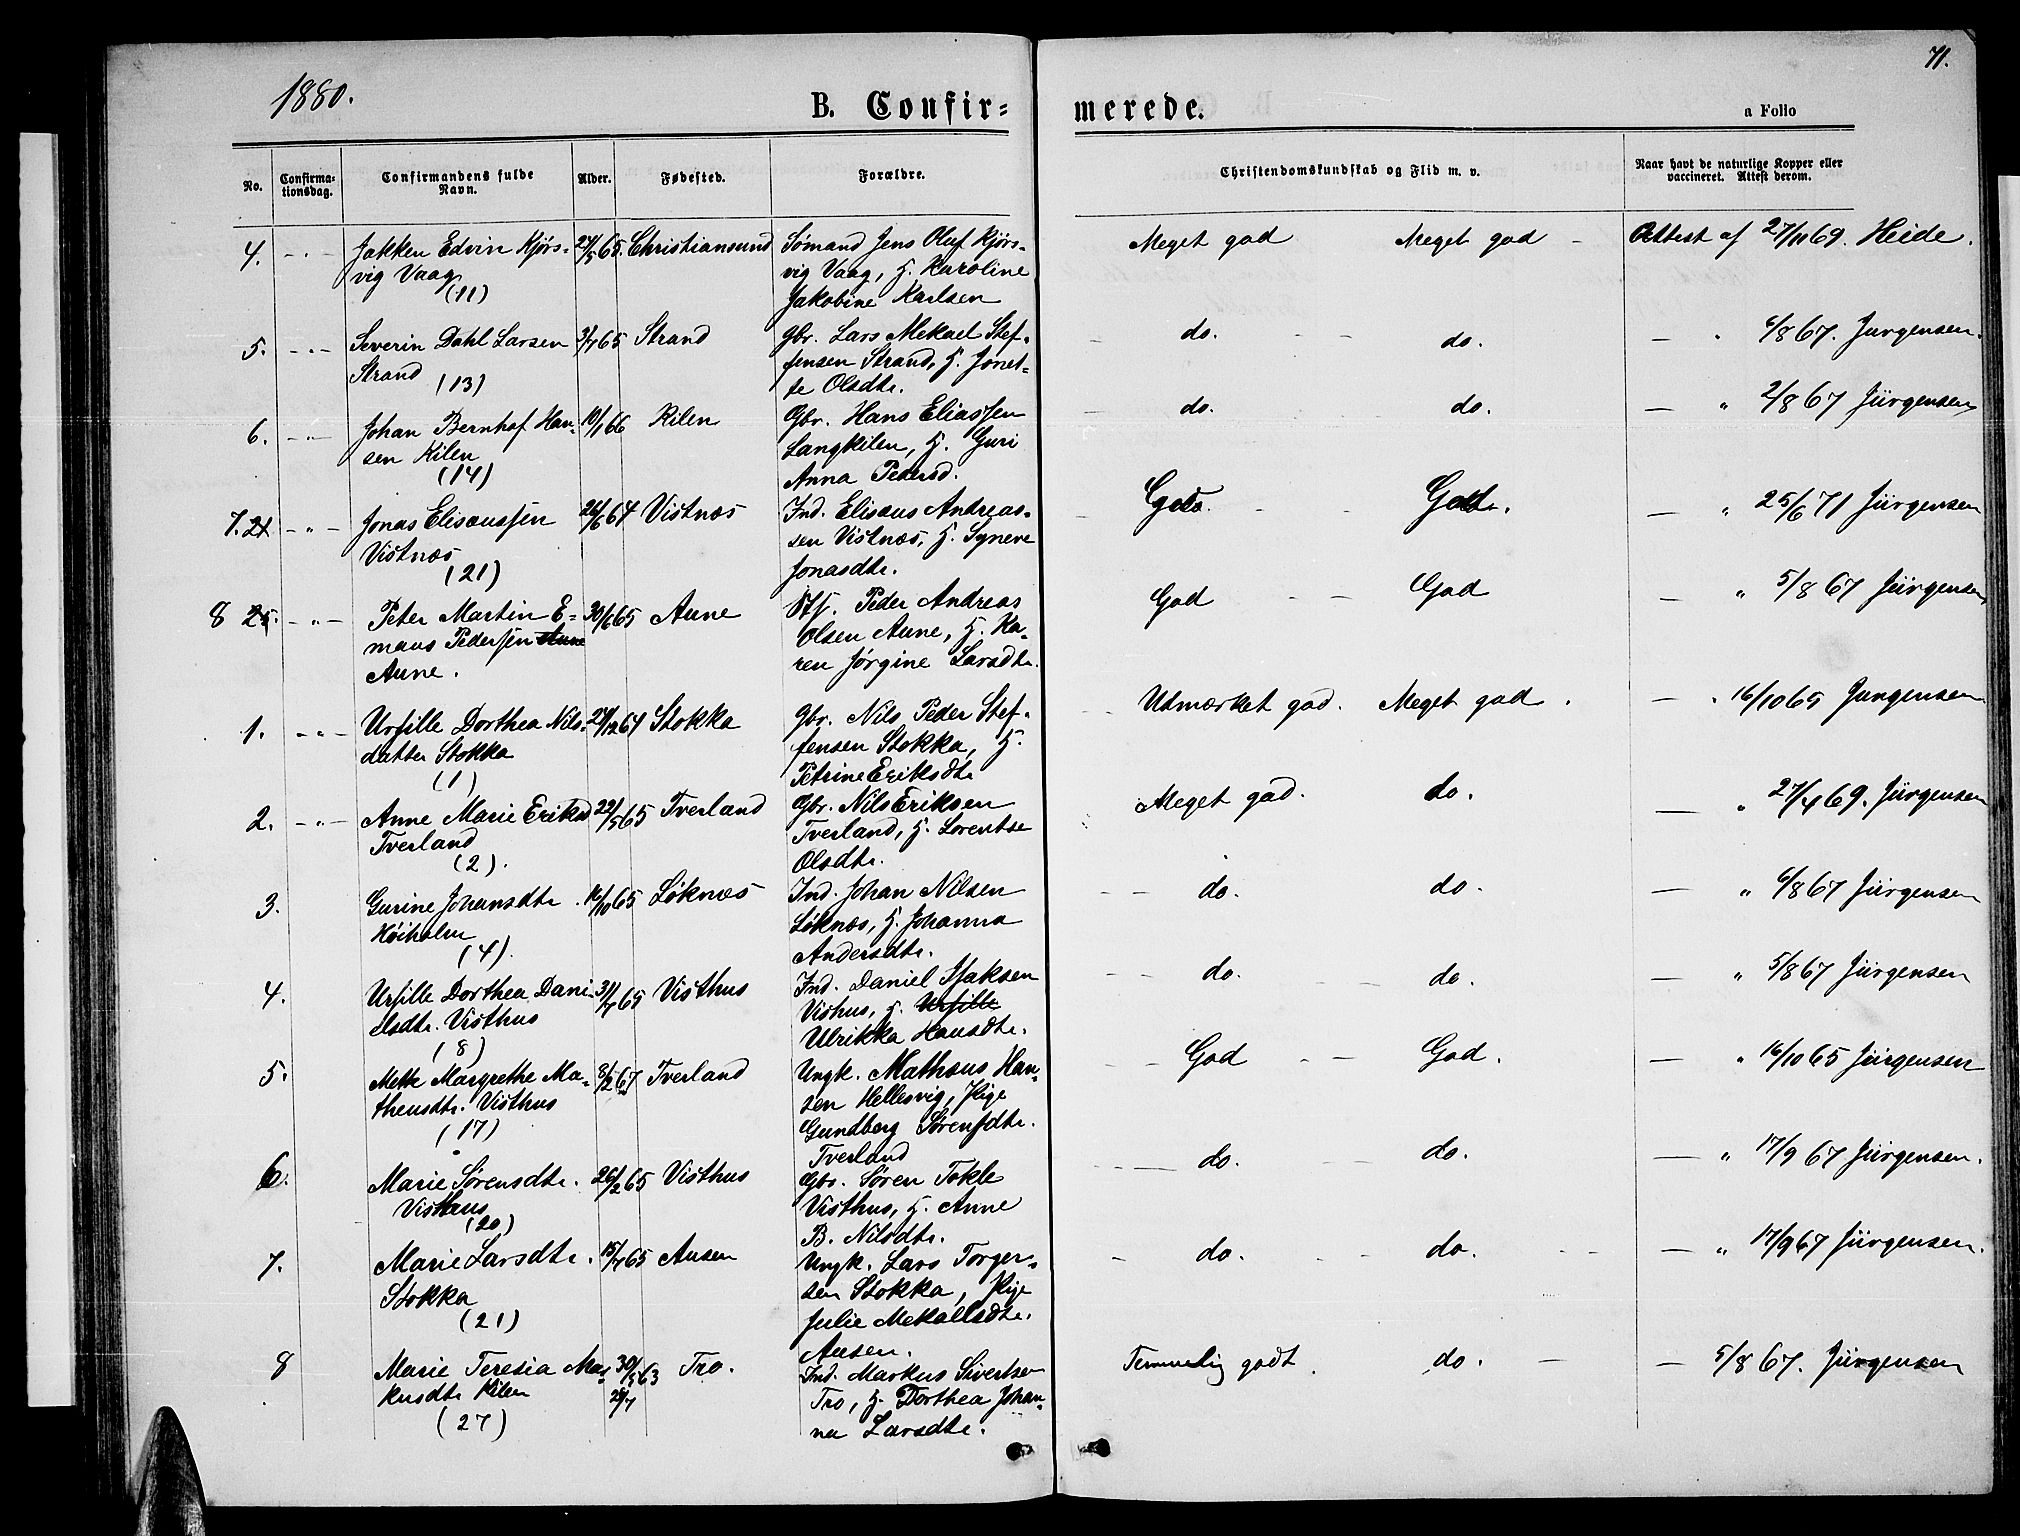 1880.
B. Confir=
merede.
a Folio
71.
No.
Confirma-
tionsdag.
Confirmandens fulde
Navn.
Alder.
Fødested.
Forældre.
Christendomskundskab og Flid m. v.
Naar havt de naturlige Kopper eller
vaccineret. Attest derom.
4. - " - Jakken Edvin Kjørs- 65. Christiansund Sømand Jens Oluf Kjørs- Meget god Meget god - Attest af 27/10 69. Heide.
vig Vaag vig Vaag, H. Karoline
(11) Jakobine Karlsen
5. - " - Severin Dahl Larsen 3/7 65 Strand Gbr. Lars Mekael Stef- - do. - - do. - " 6/8 67. Jürgensen.
Strand fensen Strand, H. Jonet-
(13) te Olsdtr.
6. - " - Johan Bernhof Han- 10/1 66 Kilen Gbr. Hans Eliassen - do. do. - " 2/8 67 Jürgensen
sen Kilen Langkilen, H. Guri
(14) Anna Petersd.
7. 21 - " - Jonas Elisæussen 26/6 64 Vistnæs Ind. Elisæus Andreas- - God. - God. - " 25/6 71 Jürgensen
Vistnæs sen Vistnæs, H. Syneve
(21) Jonasdtr.
8 25. - " - Peter Martin E= 30/6 65 Aune Peder Andreas God - - God " 5/8 67 Jürgensen
maus Pedersen Aune Olsen Aune, H. Ka-
Aune. ren Jørgine Larsdtr.
1. - " - Ursille Dorthea Nils- 64 Stokka Gbr. Nils Peder Stef- - Udmærket god. Meget god. - " 16/10 65 Jürgensen
datter Stokka fensen Stokka, H.
(1) Petrine Eriksdtr
2. - " - Anne Marie Eriksd 22/5 65 Tverland Gbr. Nils Eriksen Meget god. do. - " 27/4 69. Jürgensen
Tverland Tverland, H. Lorentse
(2). Olsdtr.
3. Gurine Johansdtr. 65 Løknæs Ind. Johan Nilsen - - do. do. - " 6/8 67 Jürgensen
Høiholm Løknæs, H. Johanna
(4) Andersdtr.
4. Ursille Dorthea Dani- 31/7 65 Visthus Ind. Daniel Isaksen - - do. - - do. - " 5/8 67 Jürgensen
elsdtr. Visthus Visthus, H. Ursille
(8) Ulrikka Hansdtr.
5. Mette Margrethe Ma- 8/2 67 Tverland Ungk. Mathæus Han- - - God - - God. - " 16/10 65 Jürgensen
theusdtr. Visthus sen Hellesvig, Pige
(17) Gundberg Sørensdtr.
Tverland
6. Marie Sørensdtr. 26/2 65 Visthus Gbr. Søren Tokle - - - do. - - do. - " 17/9 67 Jürgensen.
Visthus Visthus, H. Anne
(20) B. Nilsdtr.
7. Marie Larsdtr. 15/7 65 Ausen Ungk. Lars Torger- - do. - do. - - - " 17/9 67 Jürgensen.
Stokka sen Stokka, Pige
(21) Julie Mekalsdtr.
Ausen.
8 Marie Teresia Mar- 30/5 63 Tro. Ind. Markus Sivertsen Temmelig godt. do. - - 5/8 67. Jürgensen
kusdtr Kilen Tro, H. Dorthea Johan-
(27) na Larsdtr.